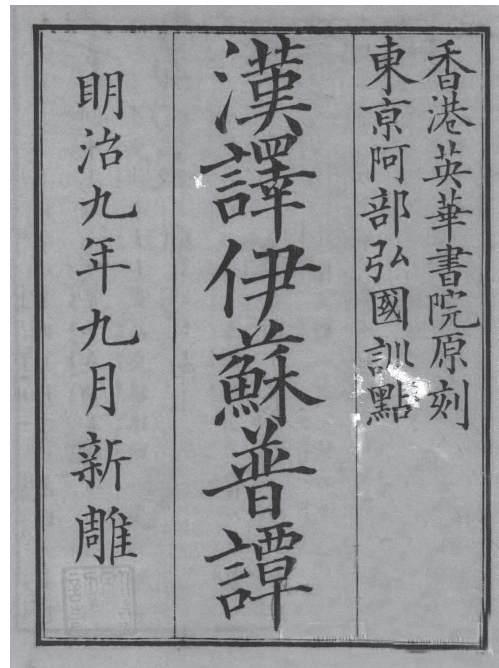 香港英華書院原刻
東亰阿部弘國訓點
漢譯伊蘇普譚
明治九年九月新雕